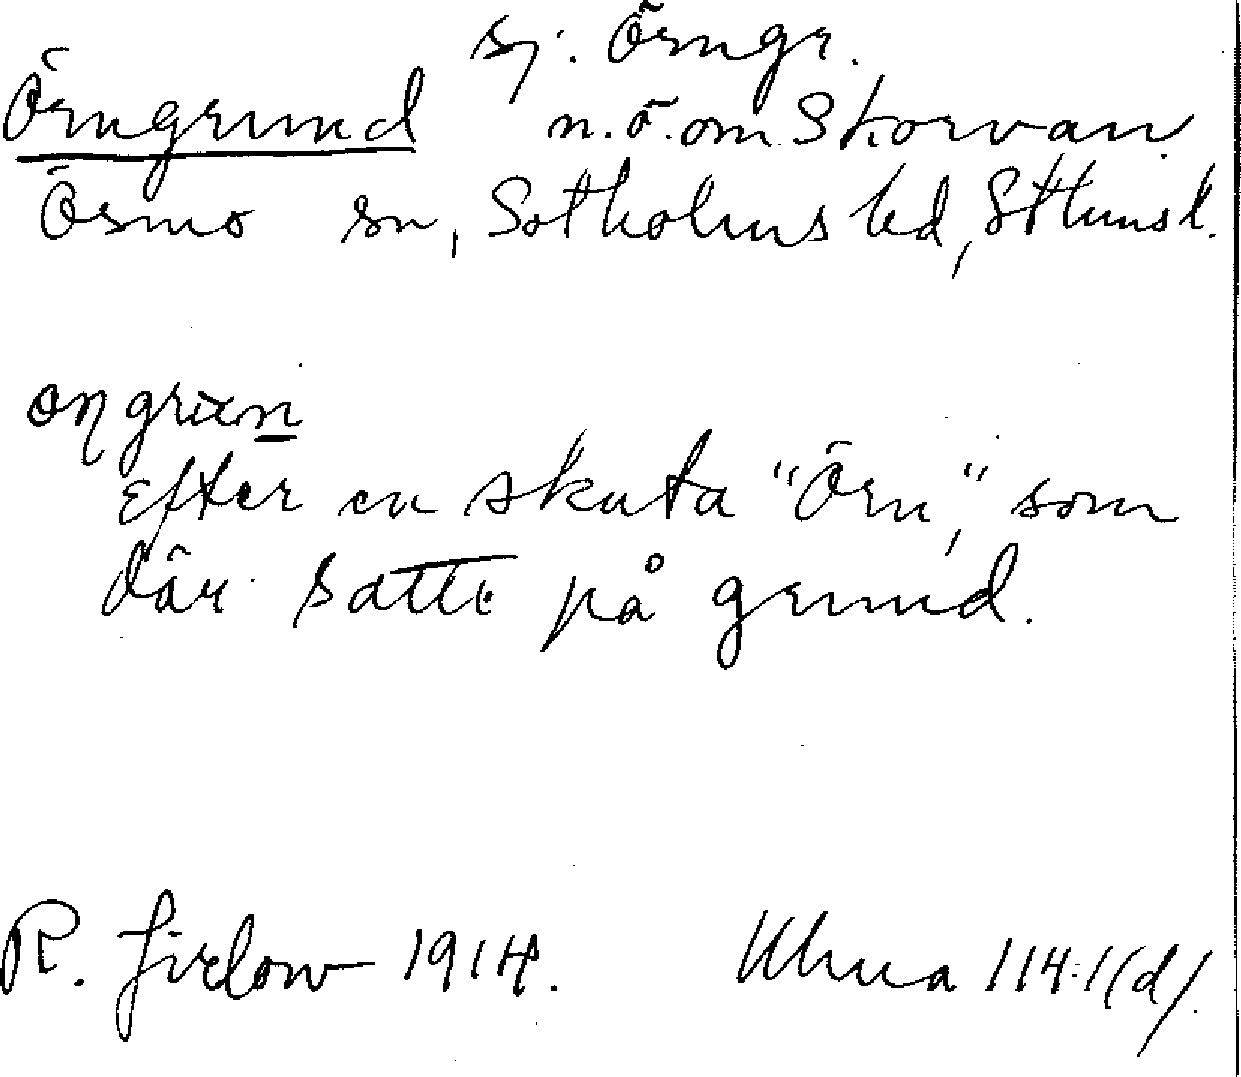 sj. Örngr.
Örngrund n.ö. om Skorvan
Ösmo sn, Sotholms hd, Sthmsl.
efter en skuta "Örn", som
där satte på grund.
R. Jirlow 1914. Uhua 114:1(d).